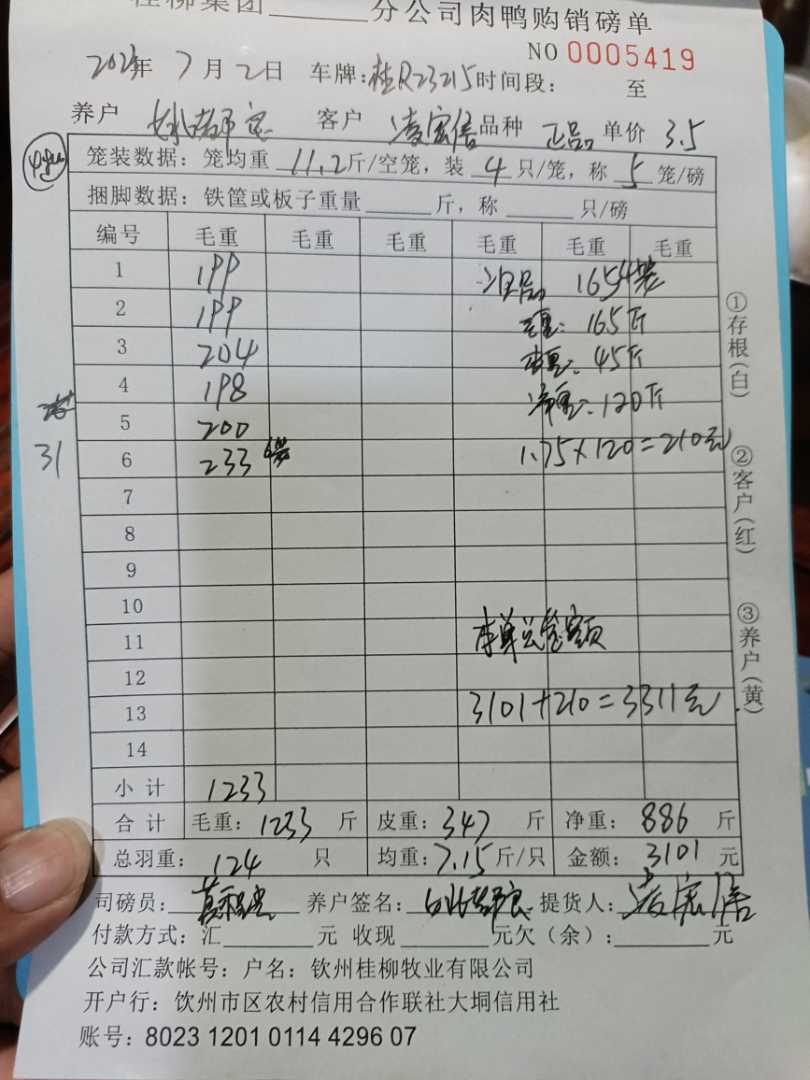 桂柳集团 分公司肉鸭购销磅单
NO 0005419
年 7月2日 车牌：桂R23215 时间段： 至
养户 客户 凌宏信 品种 正品 单价 3.5
笼装数据：笼均重 11.2 斤/空笼，装 4 只/笼，称 5 笼/磅
捆脚数据：铁筐或板子重量 斤，称 只/磅
编号 毛重 毛重 毛重 毛重 毛重 毛重
1 199 165 4装
2 199 毛重：165斤
3 204 皮重：45斤
4 198 净重：120斤
5 200
31
6 233 1.75×120=210元
7
8
9
10
11 本单总金额
12
13 3101+210=3311元
14
小计 1233
合计 毛重：1233 斤 皮重：347 斤 净重：886 斤
总羽重：124 只 均重：7.15 斤/只 金额：3101 元
司磅员： 养户签名： 提货人：凌宏信
付款方式：汇 元 收现 元欠（余）： 元
公司汇款帐号：户名：钦州桂柳牧业有限公司
开户行：钦州市区农村信用合作联社大垌信用社
账号：8023 1201 0114 4296 07
①存根（白）
②客户（红）
③养户（黄）